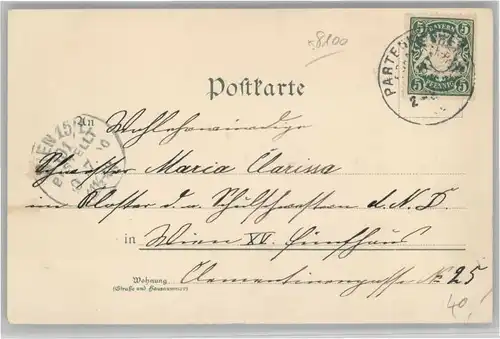 8100
5 BAYERN 5
5 PFENNIG 5
PARTEN
Postkarte
WIEN 15/1
BESTELLT
An Wohlehrwürdige
Schwester Maria Clarissa
im Kloster d. v. Schulschwestern d. N. D.
in Wien XV. Fünfhaus
Wohnung Clementinengasse № 25
(Straße und Hausnummer)
40,-